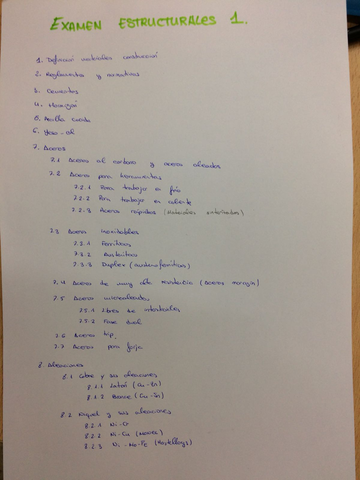 EXAMEN ESTRUCTURALES 1.
1. Definición materiales construcción
2. Reglamentos y normativas
3. Cementos
4. Hormigón
5. Arcilla cocida
6. Yeso - cal
7. Aceros
7.1 Aceros al carbono y aceros aleados
7.2 Aceros para herramientas
7.2.1 Para trabajo en frío
7.2.2 Para trabajo en caliente
7.2.3 Aceros rápidos (Materiales sinterizados)
7.3 Aceros inoxidables
7.3.1 Ferríticos
7.3.2 Austenítico
7.3.3 Duplex (Austenoferríticos)
7.4 Aceros de muy alta resistencia (Aceros maragin)
7.5 Aceros microaleados
7.5.1 Libres de intersticiales
7.5.2 Fase Dual
7.6 Aceros trip
7.7 Aceros para forja
8. Aleaciones
8.1 Cobre y sus aleaciones
8.1.1 Latón (Cu-Zn)
8.1.2 Bronce (Cu-Sn)
8.2 Niquel y sus aleaciones
8.2.1 Ni-Cr
8.2.2 Ni-Cu (Monel)
8.2.3 Ni-Mo-Fe (Hastelloys)